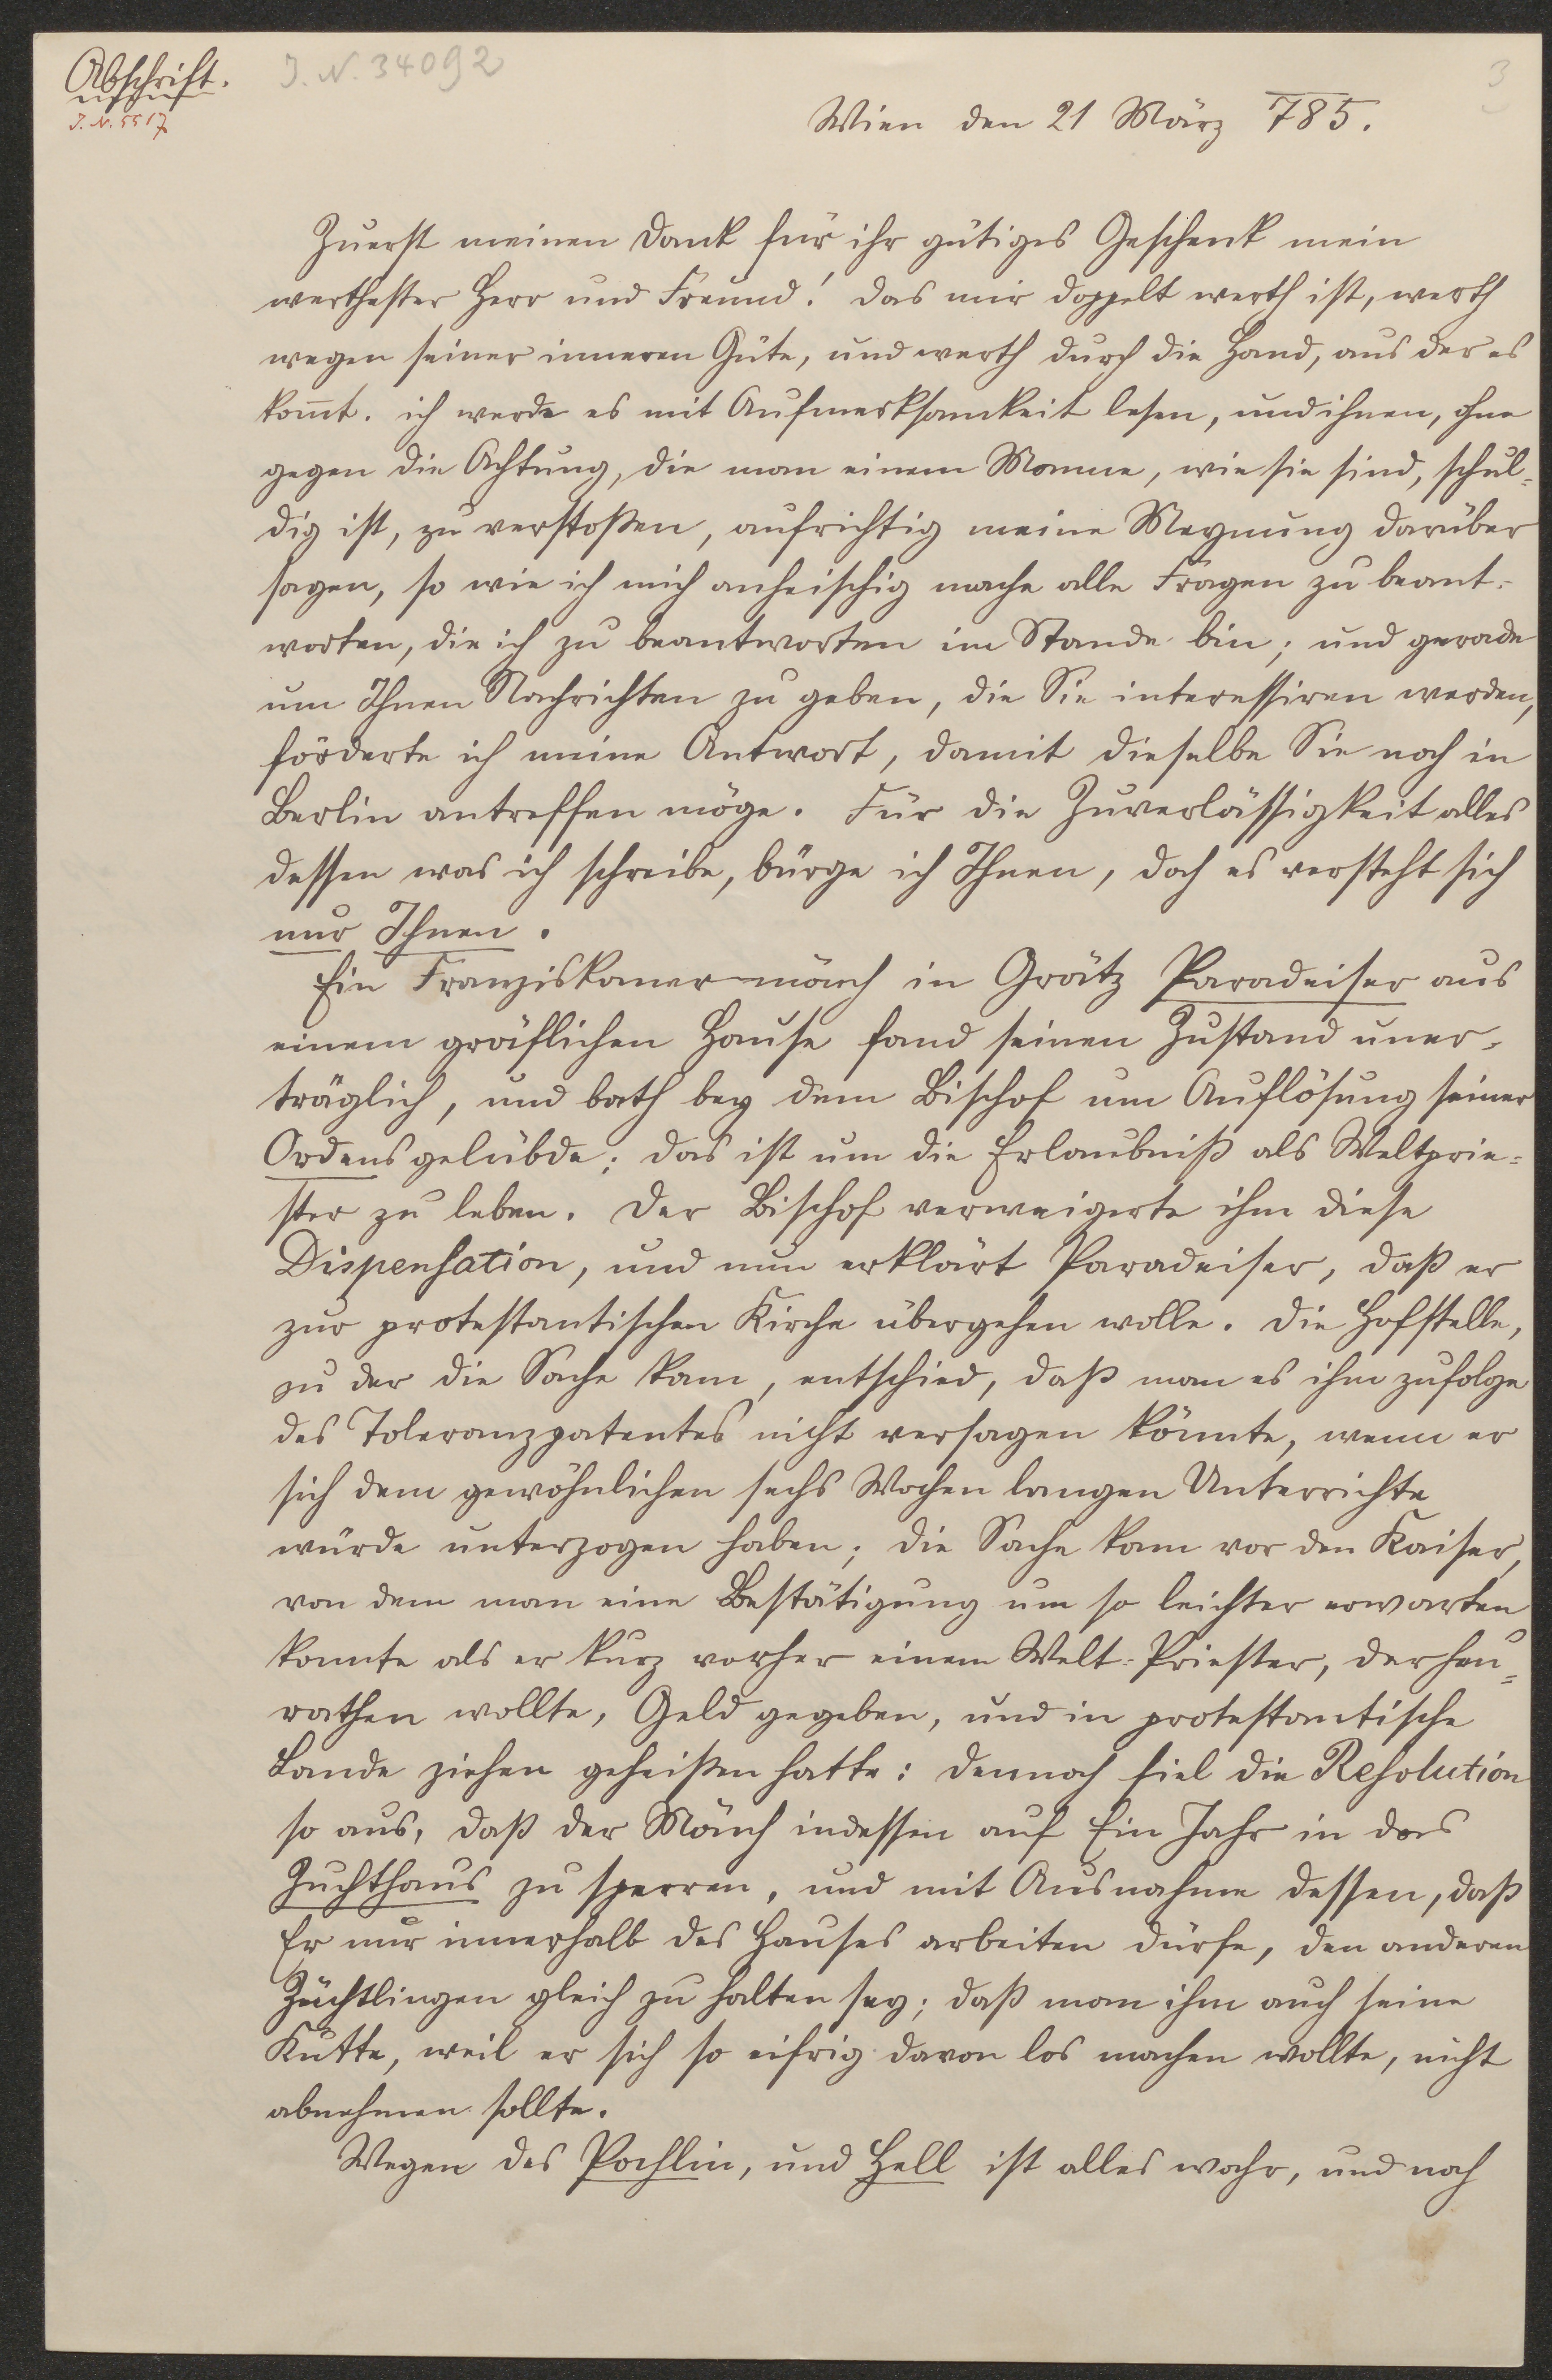 Abschrift.
J. N. 34092
3
J. N. 5517
Wien den 21 März 785.
Zuerst meinen Dank für ihr gütiges Geschenk mein
werthester Herr und Freund! das mir doppelt werth ist, werth
wegen seiner inneren Güte, und werth durch die Hand, aus der es
kom̅t. ich werde es mit Aufmerksamkeit lesen, und ihnen, ohne
gegen die Achtung, die man einem Manne, wie sie sind, schul=
dig ist, zu verstoßen, aufrichtig meine Meynung darüber
sagen, so wie ich mich anheischig mache alle Fragen zu beant=
worten, die ich zu beantworten im Stande bin; und gerade
um Ihnen Nachrichten zu geben, die Sie interessiren werden,
förderte ich meine Antwort, damit dieselbe Sie noch in
Berlin antreffen möge. Für die Zuverlässigkeit alles
dessen was ich schreibe, bürge ich Ihnen, doch es versteht sich
nur Ihnen.
Ein Franziskanermönch in Grätz Paradeiser aus
einem gräflichen Hause fand seinen Zustand uner=
träglich, und bath bey dem Bischof um Auflösung seiner
Ordensgelübde; das ist um die Erlaubniß als Weltprie=
ster zu leben. Der Bischof verweigerte ihm diese
Dispensation, und nun erklärt Paradeiser, daß er
zur protestantischen Kirche übergehen wolle. Die Hofstelle,
zu der die Sache kam, entschied, daß man es ihm zufolge
des Toleranzpatentes nicht versagen könnte, wenn er
sich dem gewöhnlichen sechs Wochen langen Unterrichte
würde unterzogen haben; die Sache kam vor den Kaiser,
von dem man eine Bestätigung um so leichter erwarten
konnte als er kurz vorher einem Welt=Priester, der heu=
rathen wollte, Geld gegeben, und in protestantische
Lande ziehen geheißen hatte: dennoch fiel die Resolution
so aus, daß der Mönch indessen auf Ein Jahr in das
Zuchthaus zu sperren, und mit Ausnahme dessen, daß
Er nur innerhalb des Hauses arbeiten dürfe, den anderen
Züchtlingen gleich zu halten sey; daß man ihm auch seine
Kutte, weil er sich so eifrig davon los machen wollte, nicht
abnehmen sollte.
Wegen des Pochlin, und Hell ist alles wahr, und noch